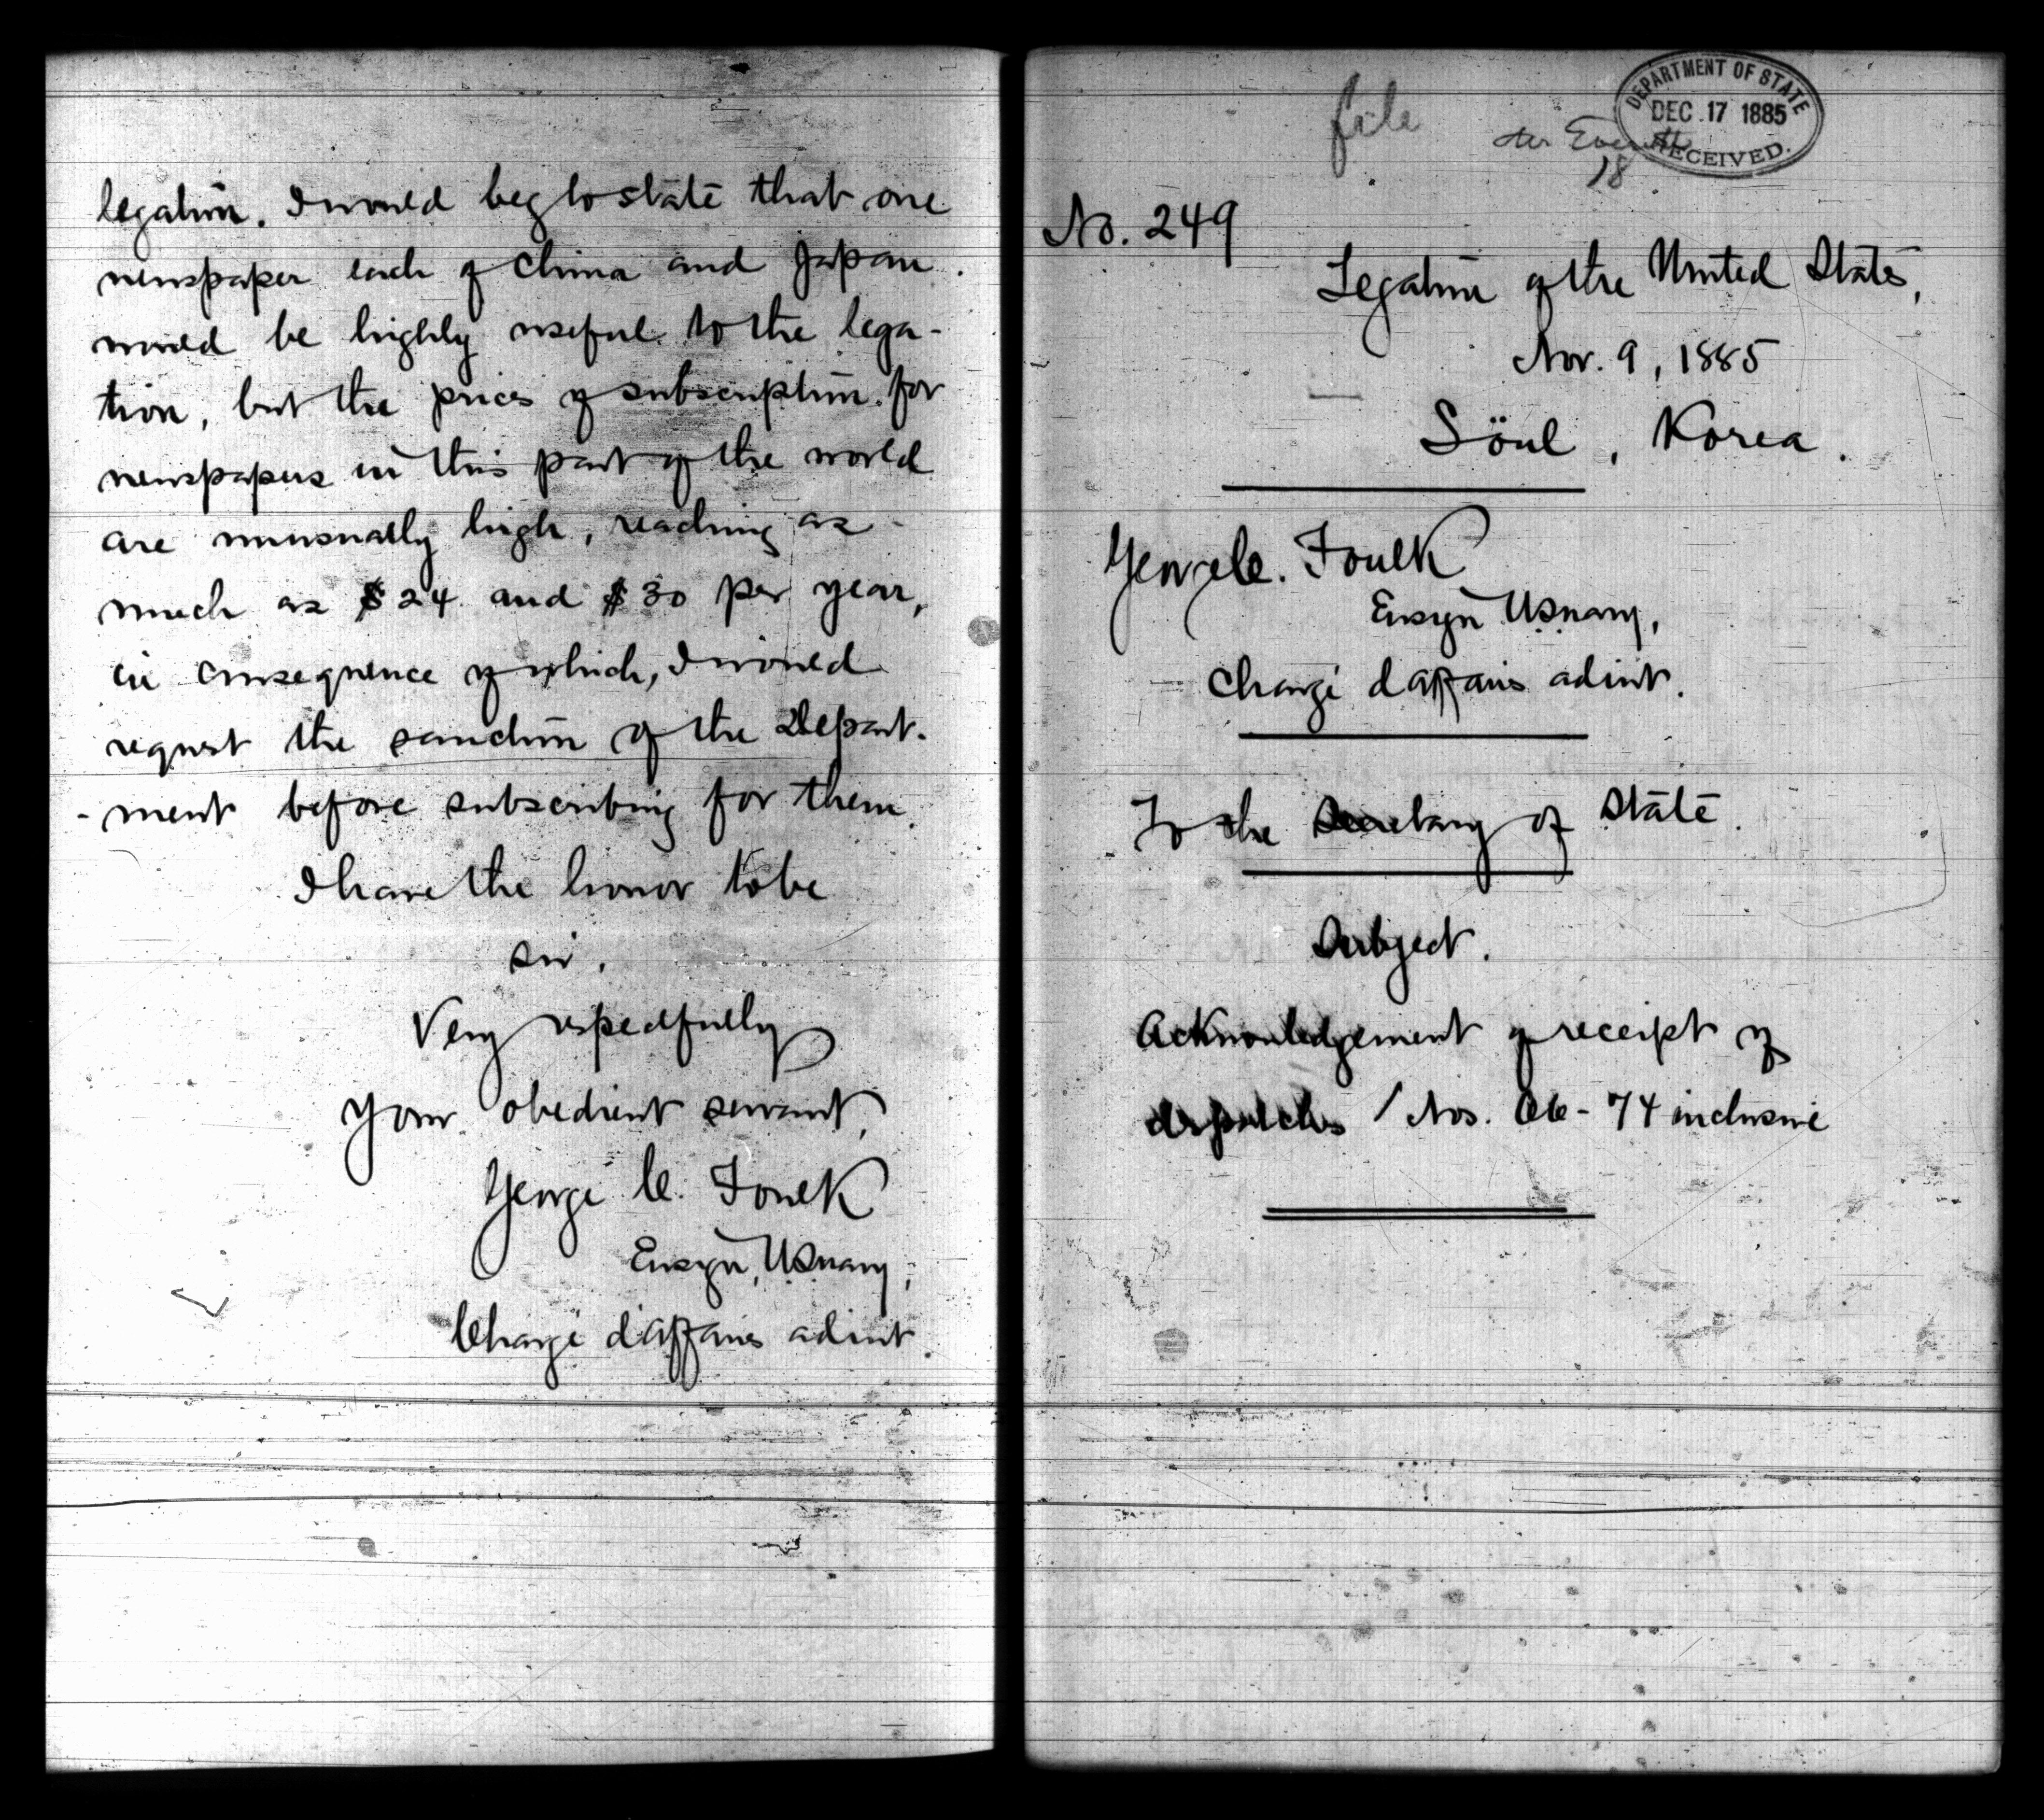 legation. I would beg to state that one
newspaper each of China and Japan
would be highly useful to the lega-
tion, but the prices of subscription for
newspapers in this part of the world
are unusually high, reaching as
much as $24 and $30 per year,
in consequence of which, I would
request the sanction of the Depart-
-ment before subscribing for them.
I have the honor to be
Sir,
Very respectfully
Your obedient servant,
George C. Foulk
Ensign, US Navy,
Chargé d'affaires ad int.
file
DEPARTMENT OF STATE
DEC 17 1885
RECEIVED.
18
No. 249
Legation of the United States,
Nov. 9, 1885
Söul, Korea.
George C. Foulk
Ensign US Navy,
Chargé d affaires ad int.
To the Secretary of State.
Subject.
Acknowledgement of receipt of
dispatches / Nos. - 74 inclusive